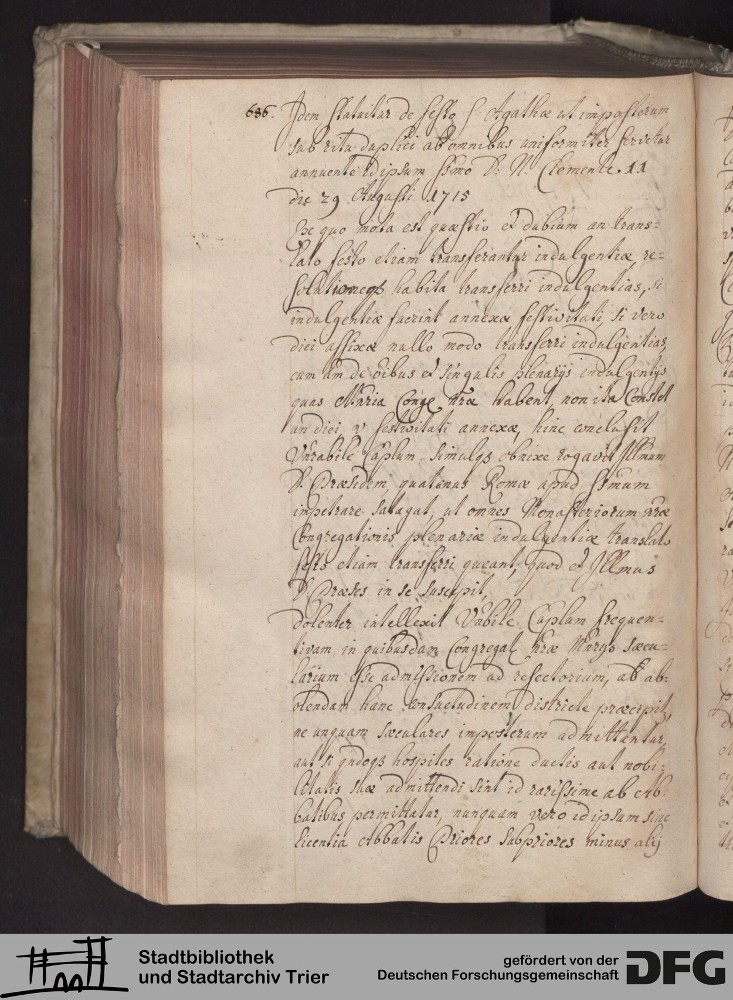 686. Idem statuitur de festo S. Agathæ ut imposterum
sub ritu duplici ab omnibus uniformiter servetur
annuente idipsum ssmo D. N. Clemente 11
die 29 Augusti 1715
Ex quo mota est quæstio et dubium an trans=
lato festo etiam transferantur indulgentiæ, re=
habita transferri indulgentias, si
indulgentiæ fuerint annexæ festivitati, si vero
diei affixæ nullo modo transferri indulgentias,
cum de et singulis plenarijs indulgentijs
quas habent, non ita
an diei, v festivitati annexæ, hinc conclusit
Vnrabile Caplum simulqs obnixe rogavit Illmum
D. Præsidem quatenus Romæ apud ssmum
impetrare satagat, ut omnes Monasteriorum nræ
Congregationis plenariæ indulgentiæ translato
festo etiam transferri queant, quod et Illmus
D. Præses in se suscepit,
dolenter intellexit Vnbile Caplum frequen=
tivam in quibusdam Congregat nræ Mnrys sæcu=
larium esse admissionem ad refectorium, ab ab=
olendam hanc consuetudinem districte præcepit,
ne unquam sæculares imposterum admittantur,
aut si qndoqs hospites ratione ductis aut nobi=
litatis suæ admittendi sint id rarissime ab Ab=
batibus permittatur, nunquam vero idipsum sine
licentia Abbatis Priores Subpriores minus alij
Stadtbibliothek
und Stadtarchiv Trier
gefördert von der
Deutschen Forschungsgemeinschaft
DFG